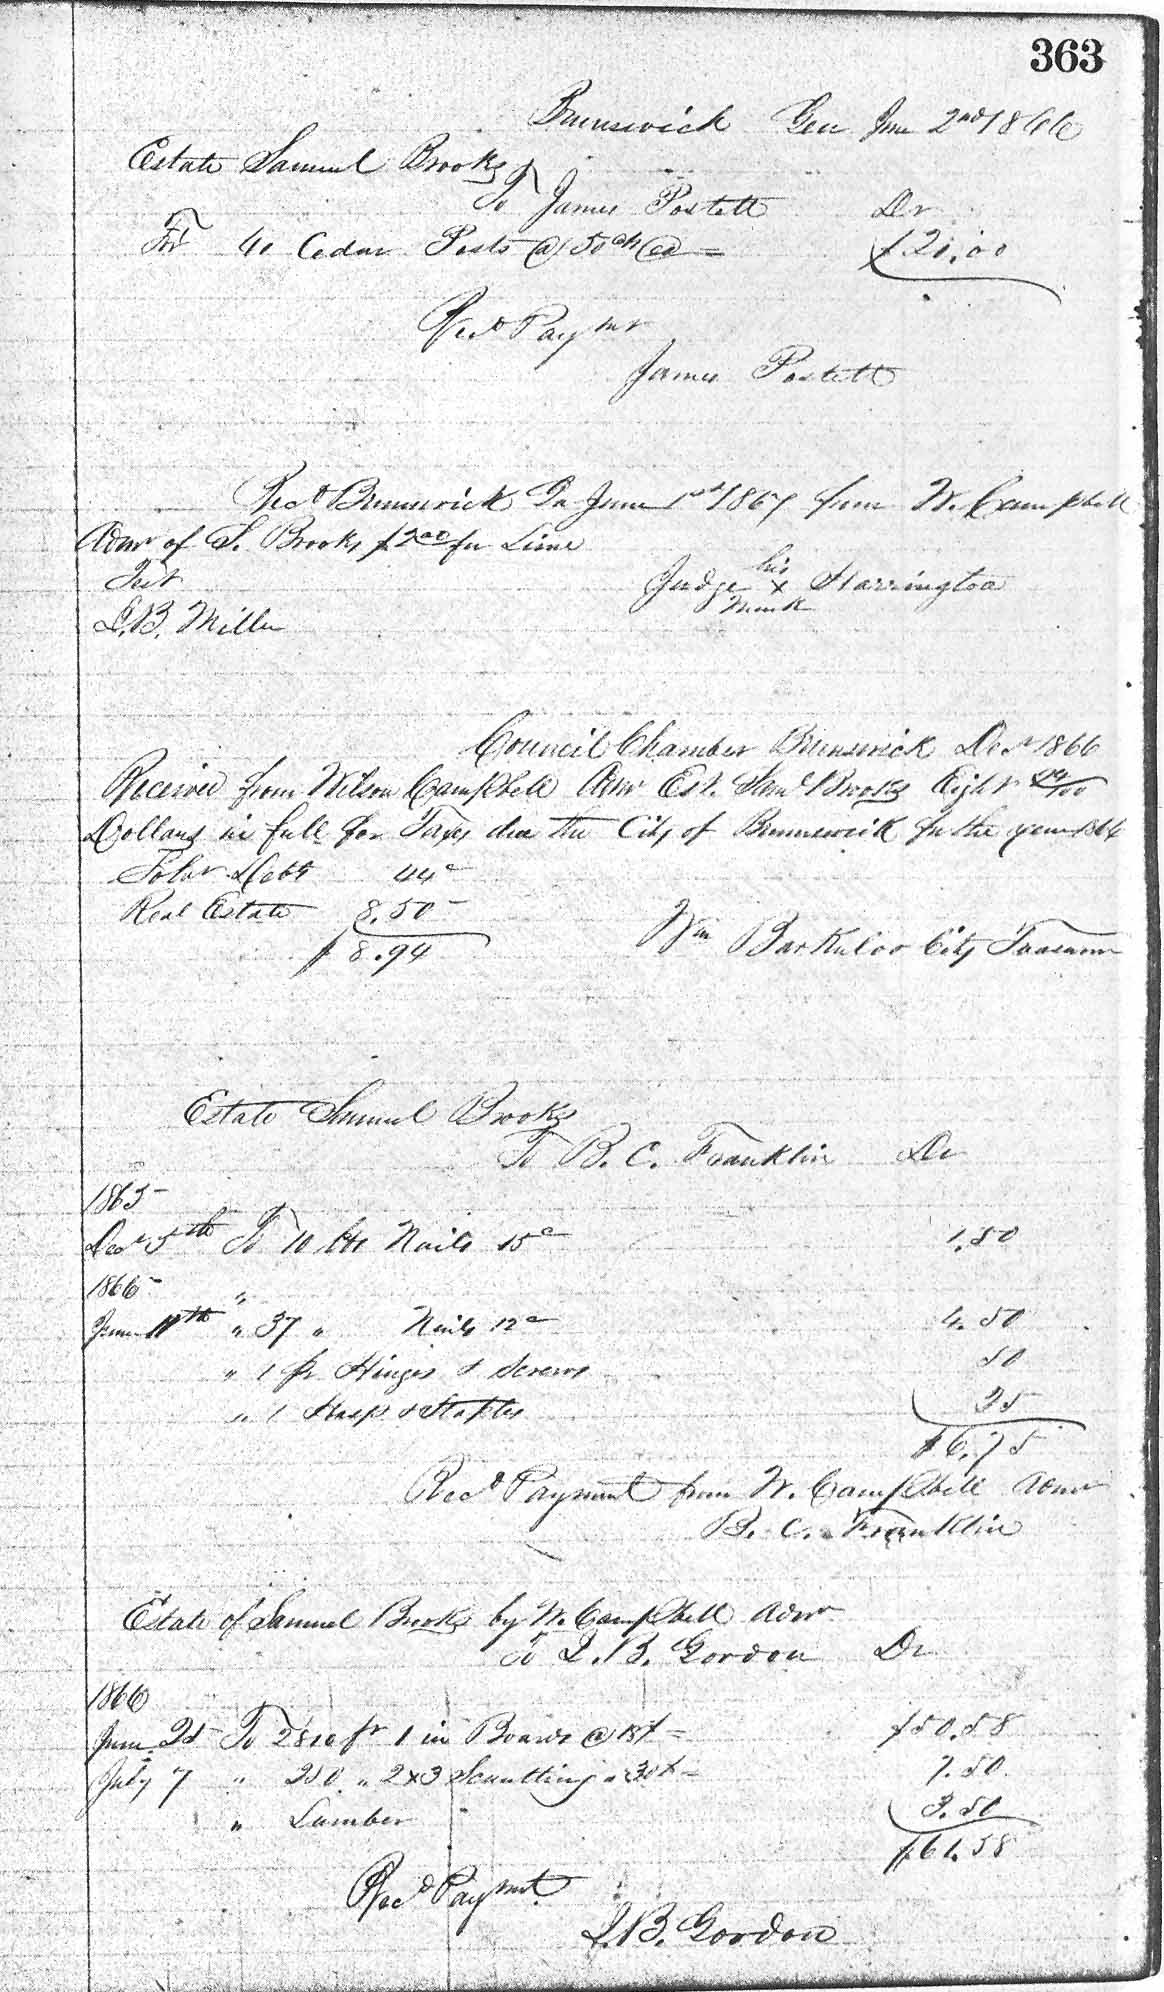 363
Brunswick Geo June 2nd 1866
Estate Samuel Brooks
To James Postell Dr
For 40 Cedar Posts @ 50 cts ea = $20.00
Recd Paymt
James Postell
Recd Brunswick Ga June 1st 1867 from W. Campbell
Admr of S. Brooks $2.00 for Lime
Test
his
Judge x Harrington
mark
L.B. Miller
Council Chamber Brunswick Decr 1866
Received from Wilson Campbell Admr Est. Saml Brooks Eight 94/100
Dollars in full for Taxes due the City of Brunswick for the year 1866
Solvt Debts 44c
Real Estate 8.50
$8.94
Wm Barkuloo City Treasurer
Estate Samuel Brooks
To B. C. Franklin Dr
1865
Decr 5th To 10 lbs Nails 15c 1.50
1866 "
June 11th " 37 " Nails 12c 4.50
" 1 pr Hinges & Screws 50
" 1 Hasp & Staples 25
$6.75
Recd Payment from W. Campbell Admr
B. C. Franklin
Estate of Samuel Brooks by W. Campbell Admr
To L.B. Gordon Dr
1866
June 25 To 2810 ft 1 in Boards @ 18$ = $50.58
July 7 " 250 " 2x3 Scantling " 30$ = 7.50
" Lumber 3.50
$61.58
Recd Paymnt
L.B. Gordon